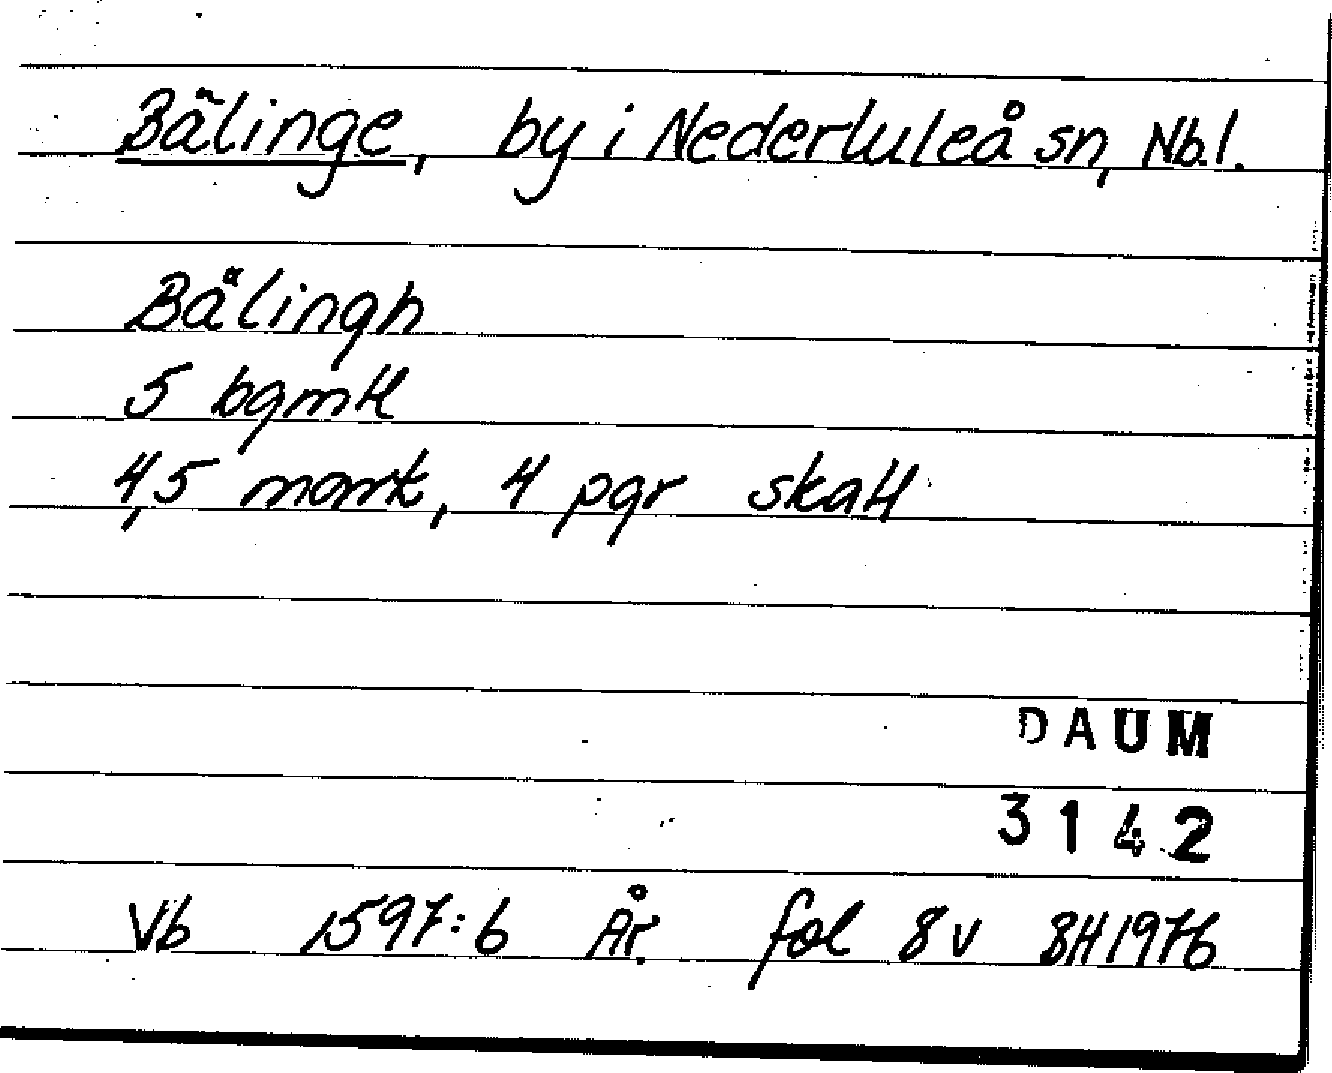 Bälinge, by i Nederluleå sn, Nb.l.
Bälingh
5 bgmtl
4,5 mark, 4 pgr skatt
DAUM
3142
Vb 1597:6 År. fol 8v BH 1976